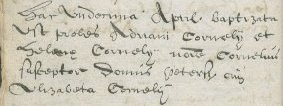 Hac undecima April baptizata
est proles Adriani Cornely et
Helena Cornely nõie Cornelius
susceptor Domus Peters cu
Elizabeta Cornely